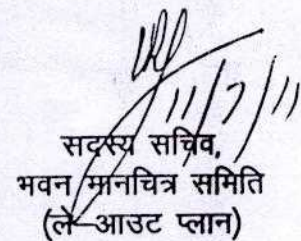 11/7/11
सदस्य सचिव,
भवन मानचित्र समिति
(ले-आउट प्लान)